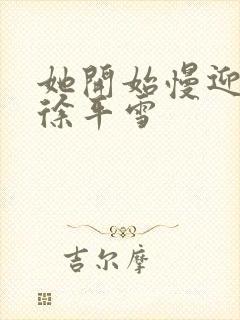 她開始慢迎
徐平雪
吉尔摩